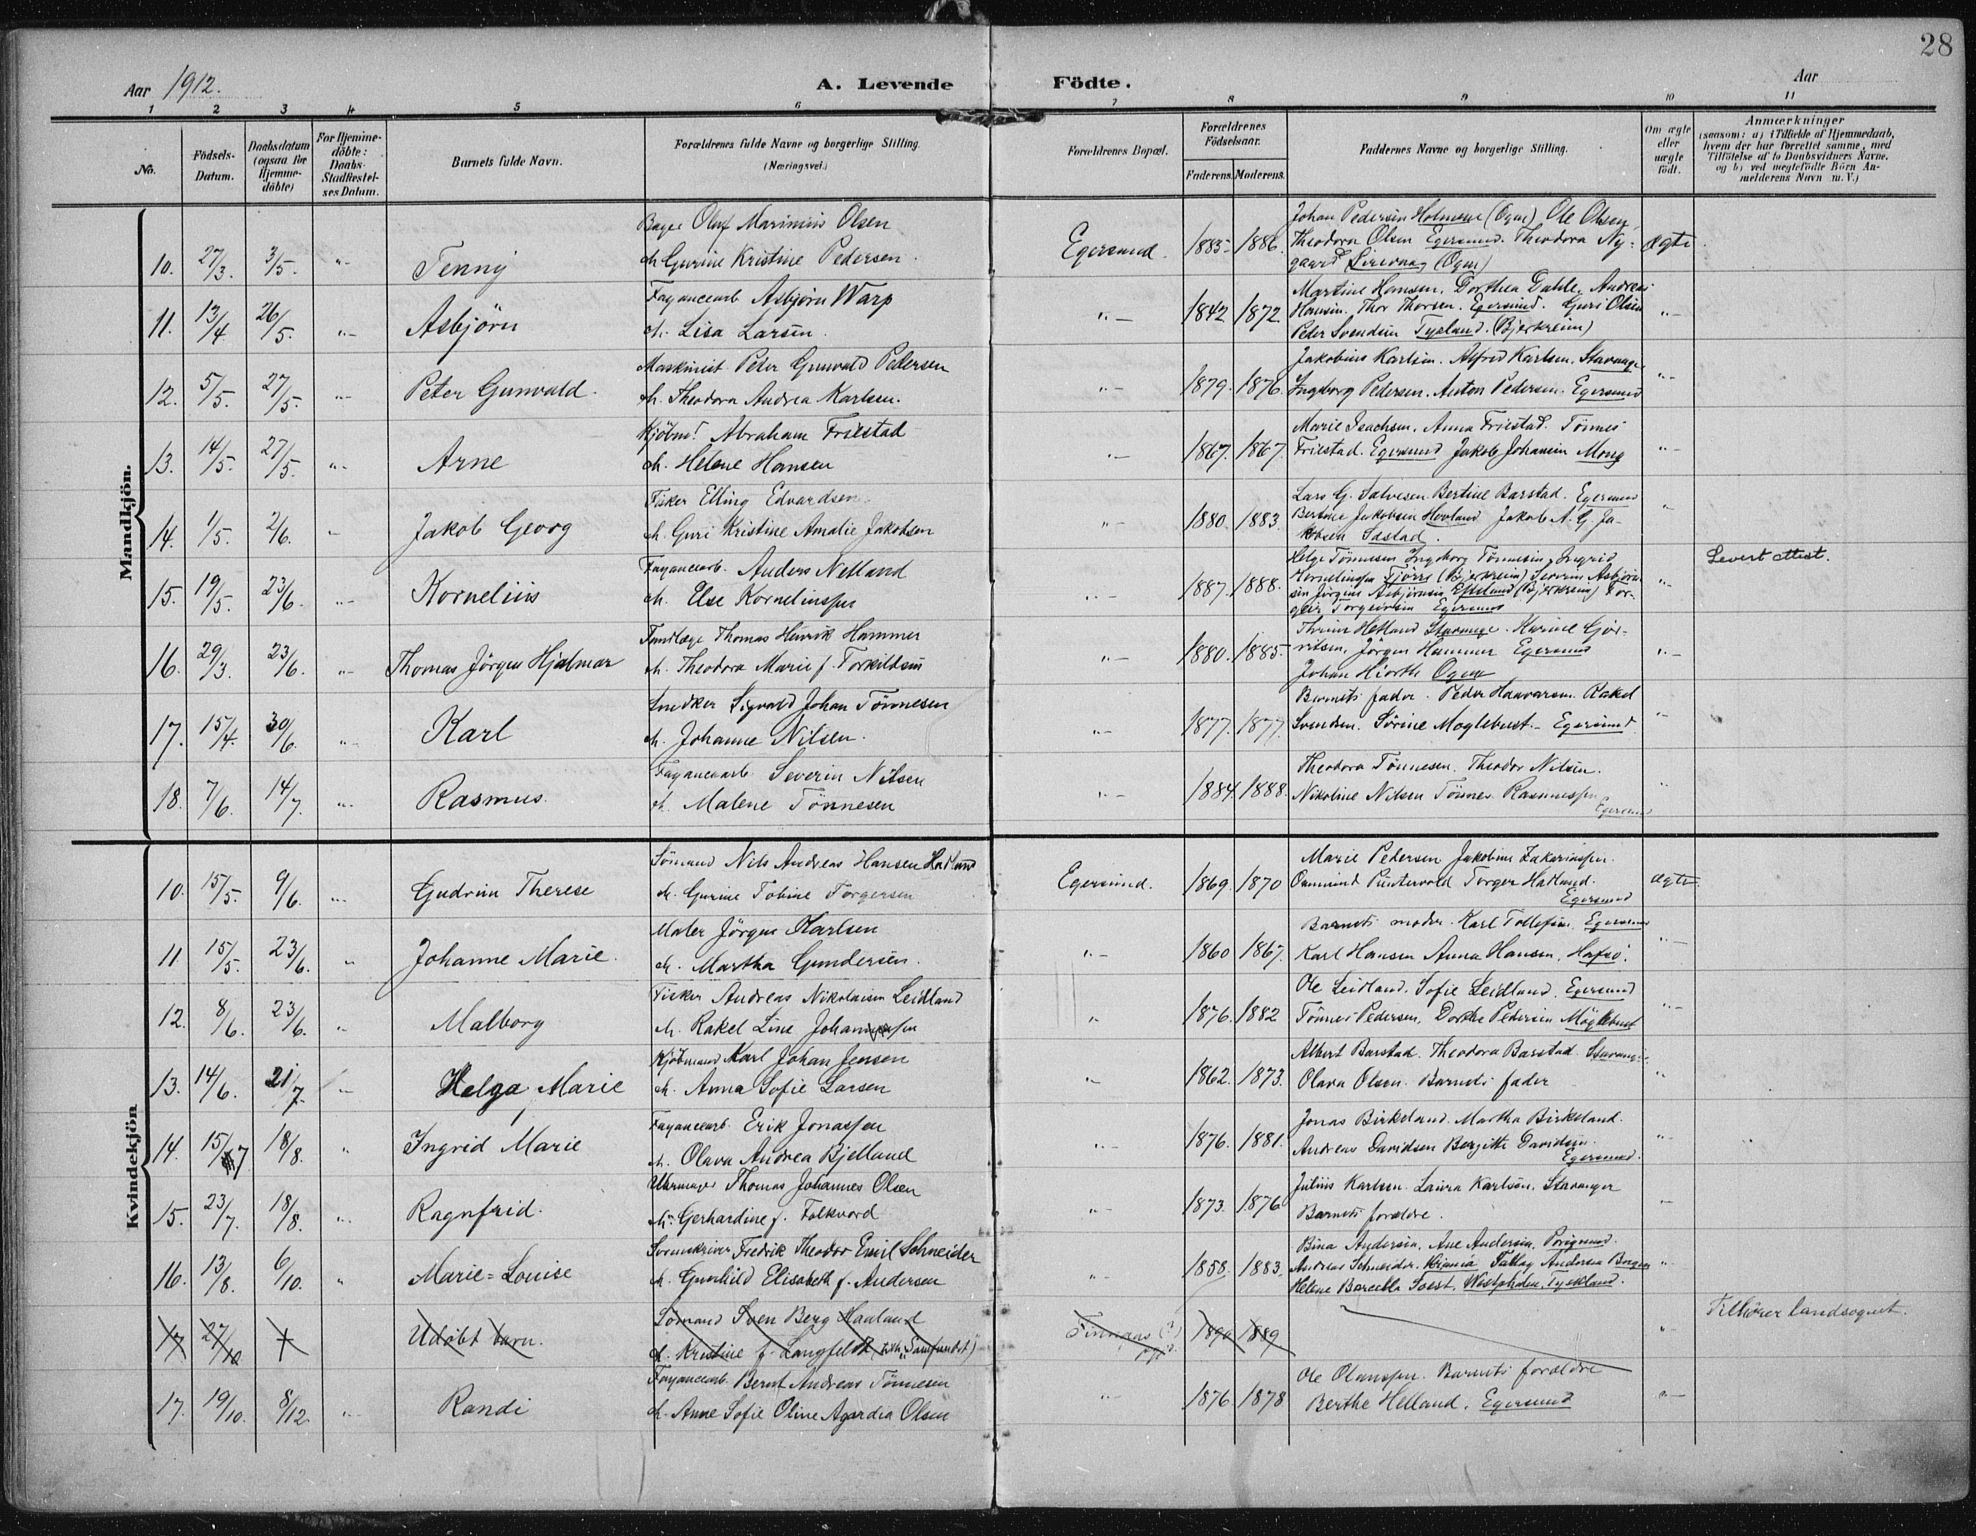 28
Aar 1912.
A. Levende Födte.
Aar
1 2 3 4 5 6 7 8 9 10 11
No.
Födsels-Datum.
Daabsdatum (ogsaa for Hjemmedöbte)
For Hjemmedöbte: Daabs-Stadfæstelses Datum.
Barnets fulde Navn.
Forældrenes fulde Navne og borgerlige Stilling. (Næringsvei.)
Forældrenes Bopæl.
Forældrenes Födselsaar.
Faderens. Moderens.
Faddernes Navne og borgerlige Stilling.
Om ægte eller uægte født.
Anmærkninger
(saasom: a) i Tilfælde af Hjemmedaab,
hvem der har forrettet samme, med
Tilföielse af to Daabsvidners Navne,
og b) ved uægtefödte Börn An-
melderens Navn m. V.)
Mandkjön.
Olaf Marinius Olsen
Johan Pedersen (Ogne) Ole Olsen,
10. 27/3. 3/5. Tenny M. Gurine Kristine Pedersen. Egersund. 1885 1886. Theodora Olsen Egersund. Theodora Ny- ægte
gaard Sirevaag (Ogne)
Fayancearb. Asbjörn Warp
Martine Hansen. Dorthea Dahle, Andreas
11. 13/4 26/5. Asbjörn M. Lisa Larsen. 1842 1872 Hansen. Thor Thorsen. Egersund. Guri Olsen
Peder Svendsen Tysland. (Bjerkreim)
Maskinist Peter Gunvald Pedersen
Jakobine Karlsen. Alfred Karlsen. Stavanger
12. 5/5. 27/5. Peter Gunvald. M. Theodora Andrea Karlsen. 1879. 1876. Ingeborg Pedersen. Anton Pedersen. Egersund
Kjöbm. Abraham Friestad
Marie Isachsen. Anna Friestad. Tönnes
13. 14/5. 27/5. Arne M. Helene Hansen 1867. 1867. Friestad. Egersund Jakob Johansen Mong
Fisker Elling Edvardsen
Lars G. Salvesen Bertine Barstad. Egersund
14. 1/5. 2/6. Jakob Georg M. Guri Kristine Amalie Jakobsen 1880 1883. Bertine Jakobsen Hovland Jakob A. G. Ja-
kobsen
Fayancearb. Anders Netland
Helge Tönnesen Ingeborg Tönnesen, Ingrid
Levert attest.
15. 19/5. 23/6. Kornelius M. Else Korneliussen 1887. 1888. Korneliussen (Bjerkreim) Severin Asbjörn-
sen Jörgine Asbjörnsen Efteland (Bjerkreim) Tor-
geir Torgeirsen Egersund
Tandlæge Thomas Henrik Hammer
Hetland Stavanger. Karine Gjer-
16. 29/3. 23/6. Thomas Jörgen Hjalmar M. Theodora Marie f. Torkildsen 1880. 1885. Jörgen Hammer Egersund
Johan Hiorth Ogne
Snedker Sigvald Johan Tönnesen
Barnets fader. Peder Haavarsen. Rakel
17. 15/4. 30/6. Karl M. Johanne Nilsen. 1877. 1877. Svendsen. Sörine Möglebust. Egersund.
Fayancearb. Severin Nilsen
Theodora Tönnesen. Theodor Nilsen.
18. 7/6. 14/7. Rasmus M. Malene Tönnesen 1884. 1888. Nikoline Nilsen Tönnes Rasmussen
Egersund
Kvindekjön
Sömand Nils Andreas Hansen Hatland
Marie Pedersen Jakobine Zakariassen.
10. 15/5. 9/6. Gudrun Therese M. Gurine Tobine Torgersen Egersund. 1869. 1870 Ommund Puntervold Torger Hatland. ægte
Egersund
Maler Jörgen Karlsen
Barnets moder. Karl Tollefsen. Egersund
11. 15/5. 23/6. Johanne Marie. M. Martha Gundersen. 1860 1867. Karl Hansen Anna Hansen, Hafsö.
Fisker Andreas Nikolaisen Leidland
Ole Leidland. Sofie Leidland. Egersund
12. 8/6. 23/6. Malborg M. Rakel Line Johannessen 1876. 1882 Tönnes Pedersen, Dorthe Pedersen Möglebust
Kjöbmand Karl Johan Jensen
Albert Barstad. Theodora Barstad. Stavanger
13. 14/6. 21/7. Helga Marie M. Anna Sofie Larsen 1862. 1873. Olava Olsen. Barnets fader
Fayancearb. Erik Jonassen
Jonas Birkeland. Martha Birkeland.
14. 15/7 18/8. Ingrid Marie M. Olava Andrea Bjelland 1876. 1881. Andreas Davidsen Bergitte Davidsen.
Egersund.
Uhrmager Thomas Johannes Olsen
Julius Karlsen. Laura Karlsen. Stavanger
15. 23/7. 18/8. Ragnfrid. M. Gerhardine f. Folkvord 1873. 1876 Barnets forældre.
Sorenskriver Fredrik Theodor Emil Schneider
Bina Andersen, Ane Andersen, Porsgrund.
16. 13/8. 6/10. Marie-Louise M. Gunhild Elisabeth f. Andersen 1858. 1883. Andreas Schneider, Kr.ania Andersen Bergen
Helene Soest, Westphalen, Tyskland.
Sömand Sven Berg Haaland
Tilhörer landsognet.
17 27/10 Udöbt barn. M. Kristine f. Langfeldt Finnaas (?) 1890 1889
Fayancearb. Bernt Andreas Tönnesen
Ole Olaussen. Barnets forældre
17. 19/10. 8/12. Randi M. Anne Sofie Oline Agardia Olsen 1876. 1878 Berthe Helland. Egersund